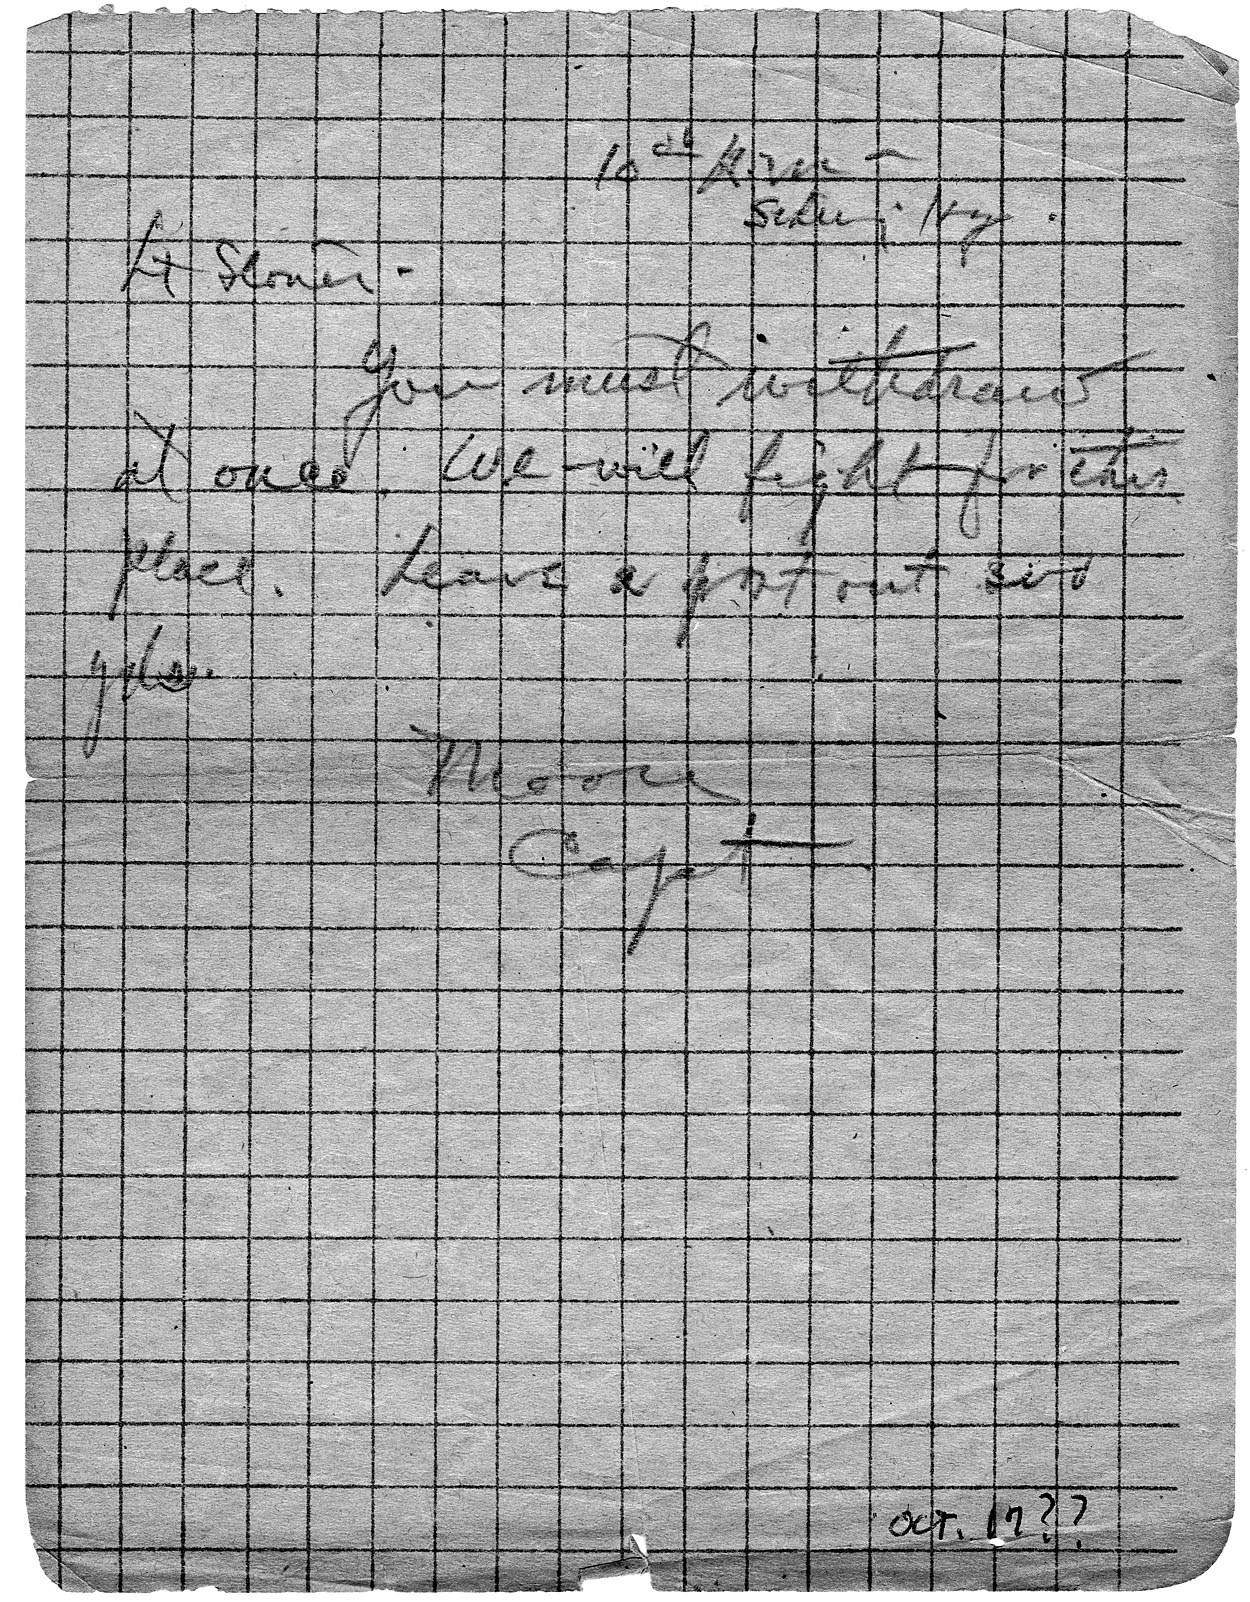 10th
Lt Stoner.
You must withdraw
at once. We will fight for this
place. Leave a post out 200
yds.
Moore
Capt
OCT. 17??